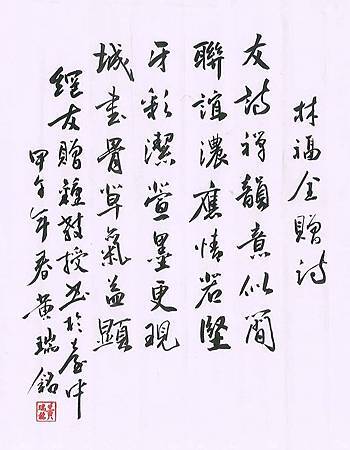 林福全贈詩
友詩禪韻意似簡
聯誼濃應情若堅
牙彩潔墨更現
城書骨草氣益顯
網友贈教授書於臺中
甲午年春黃瑞銘